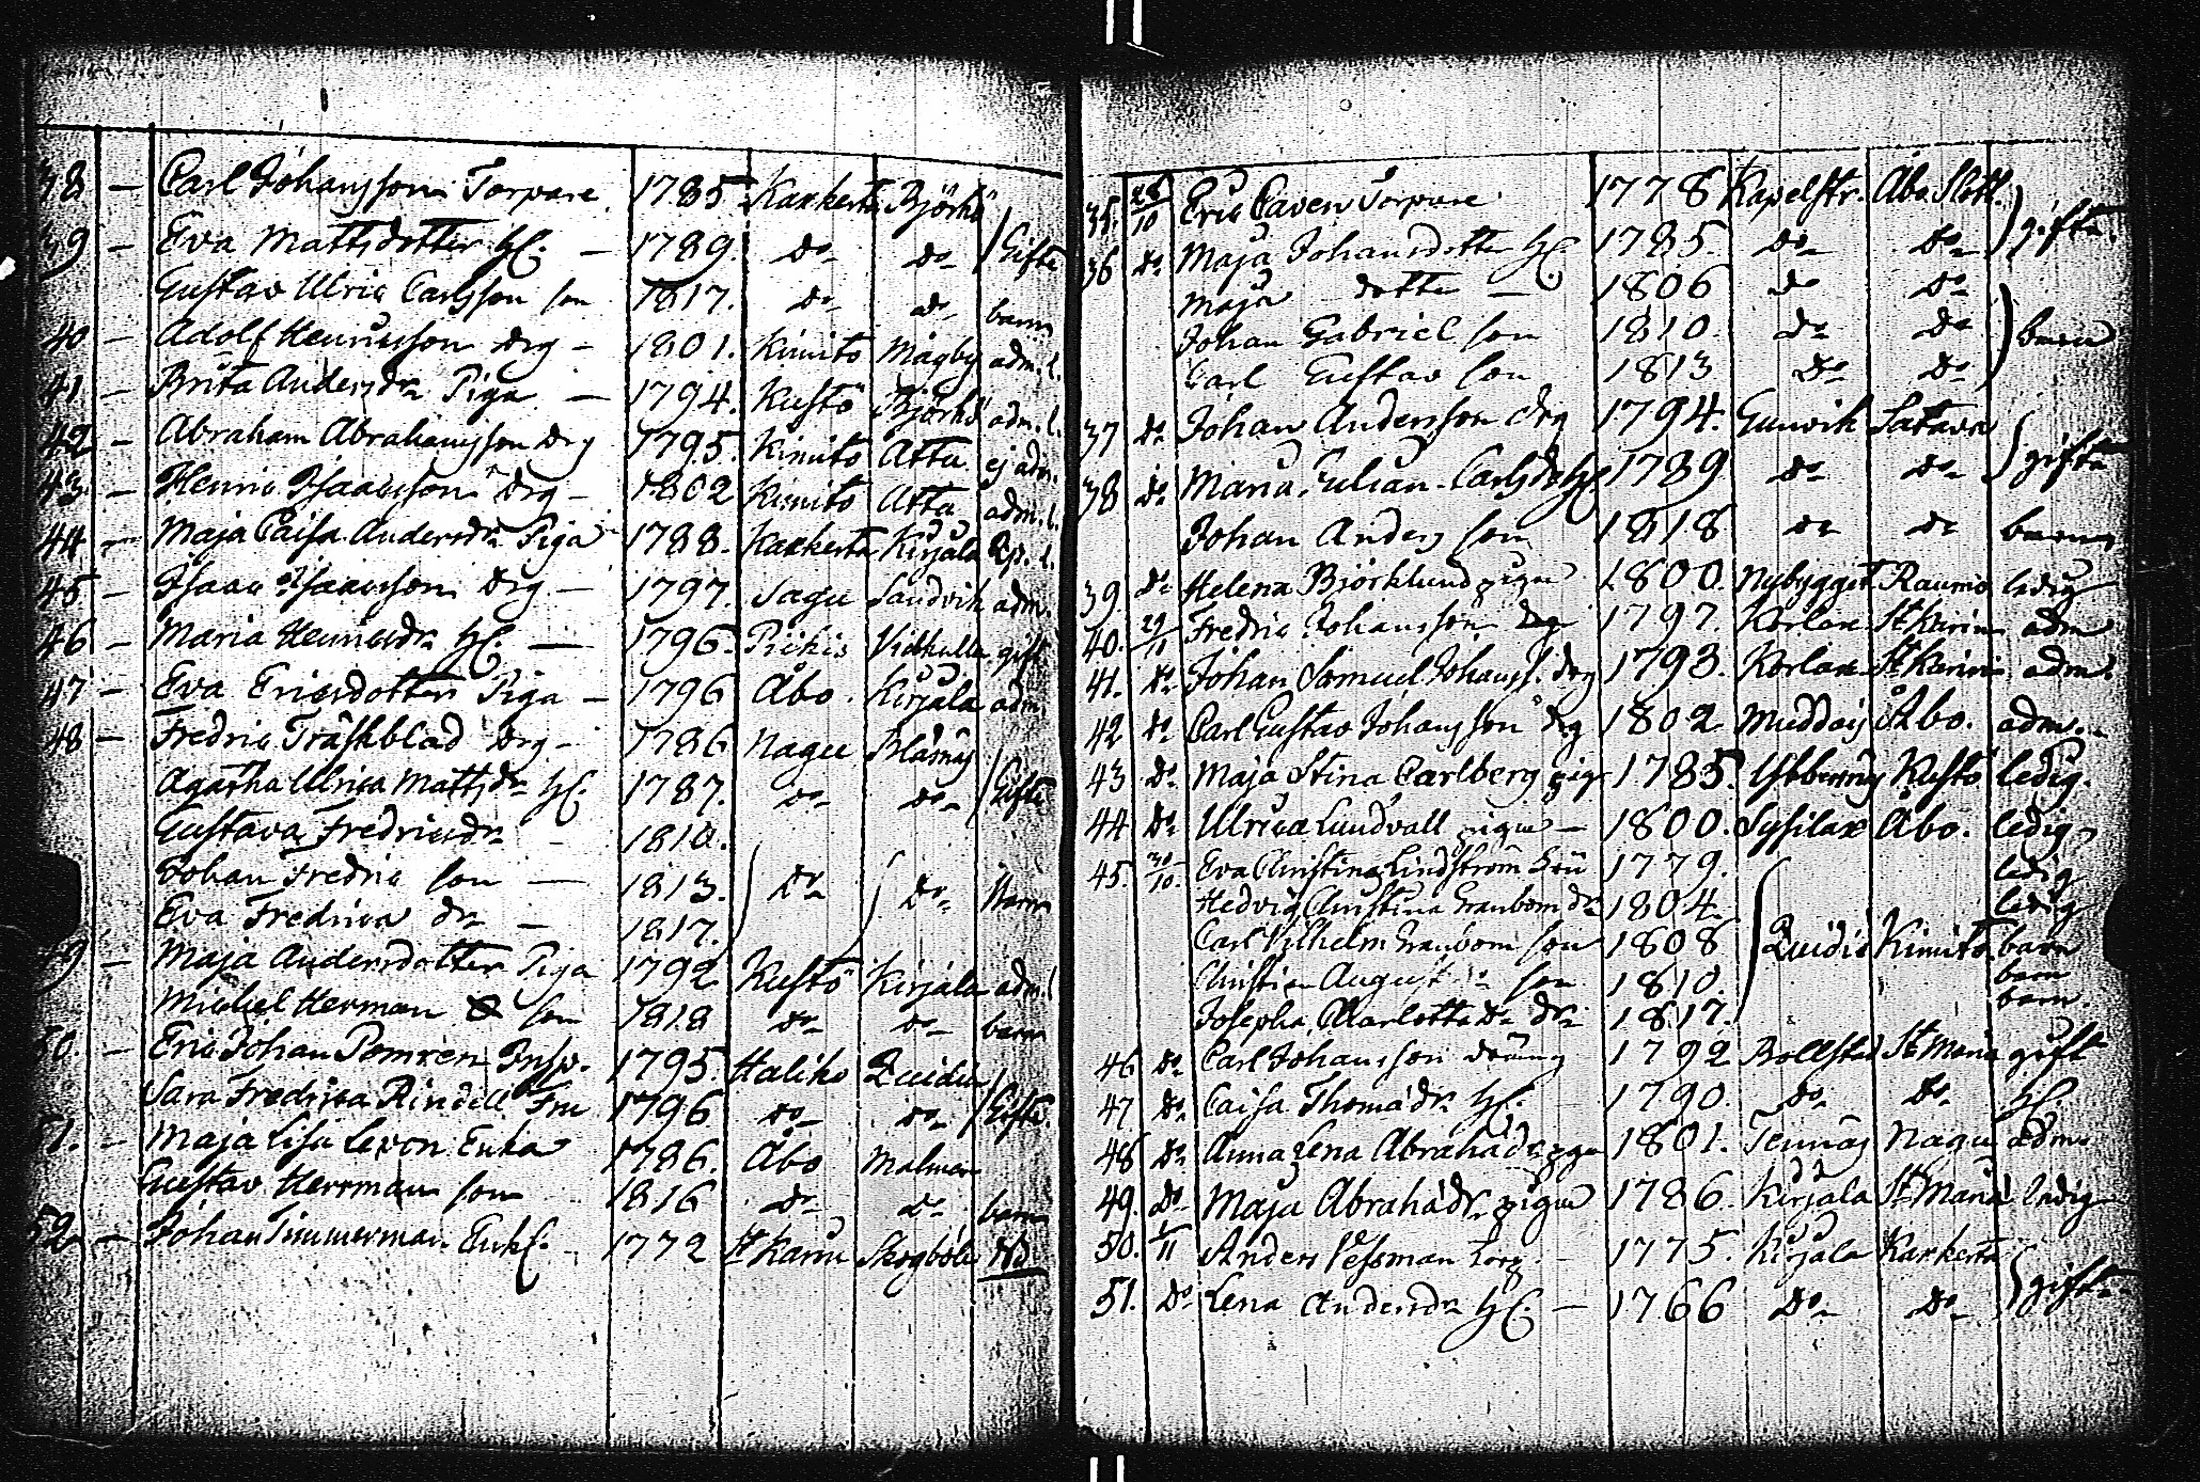 38 – Carl Johansson Torpare 1785 Karkerta Björkö
39 – Eva Mattsdotter H. – 1789. Do Do Gifte
Gustav Ulric Carlsson son 1817. Do Do barn
40 – Adolf Henricsson drg – 1801. Kimito Mågby adm. l.
41 – Brita Andersdr Piga – 1794. Kustö Björkö adm. l.
42 – Abraham Abrahamsson drg 1795. Kimito Atta ej adm.
43 – Henric Isaacsson drg – 1802 Kimito Atta adm. l.
44 – Maja Caisa Andersdr Piga 1788. Karkerta Kirjala l.
45 – Isaac Isaacsson drg. – 1797. Sagu Sandvik adm.
46 – Maria Henricsdr H. – 1796. Piikis Vidkulla gift
47 – Eva Ericsdotter Piga – 1796 Åbo. Kirjala adm.
48 – Fredric Träskblad drg – 1786 Nagu Blåsnäs
Agatha Ulrica Mattsdr H. 1787. Do Do Gifte
Gustava Fredricsdr – 1810.
Johan Fredric son – 1813. Do Do Barn
Eva Fredrica dr – 1817.
49 – Maja Andersdotter Piga 1792 Kustö Kirjala adm. l
Michel Herman son 1818 Do Do barn
50. – Eric Johan Pomren Insp. 1795. Haliko Qvidia
Sara Fredrica Rindell Fru 1796 Do Do Gifte.
51. – Maja Lisa Levon Enka 1786. Åbo Malmen
Gustav Herrman son 1816 Do Do barn
52. – Johan Timmerman Enkl. – 1772 St Karin Skogböle
35. 28/10 Eric Caven Torpare 1778 Kapelstr. Åbo Slott.
36 Do Maja Johansdotter H. 1785. Do Do gifta.
Maja dotter – 1806 Do Do
Johan Gabriel son 1810. Do Do barn
Carl Gustav son 1813 Do Do
37 Do Johan Andersson drg 1794. Gunvik Satava
38 Do Maria Julian. Carlsdr H. 1789 Do Do gifta
Johan Anders son 1818 Do Do barn
39. Do Helena Björklund piga 1800. Nybygget Raumo ledig
40. 29/11 Fredric Johansson drg 1797. Korlax St Karins adm
41. Do Johan Samuel Johanss. drg 1793. Korlax St Karins adm.
42 Do Carl Gustav Johansson drg 1802 Muddais Åbo. adm.
43 Do Maja Stina Carlberg pig 1785. Kustö ledig.
44 Do Ulrica Lundvall piga – 1800. Sysilax Åbo. ledig
45. 30/10. Eva Christina Lindström 1779. ledig
Hedvig Christina Granbom dr 1804. ledig
Carl Vilhelm Granbom son 1808 Qvidia Kimito. barn
Christian August Do son 1810. barn
Josepha Charlotta Do dr 1817. barn.
46 Do Carl Johansson dräng 1792 Bollstad St Maria gift
47 Do Caisa Thomædr H. 1790. Do Do H.
48 Do Anna Lena Abrahadr piga 1801. Tennäs Nagu adm
49. Do Maja Abrahadr piga 1786. Kirjala St Maria ledig
50. 1/11 Anders Vessman torp. – 1775. Kirjala Karkerta
51. Do Lena Andersdr H. – 1766 Do Do gifta